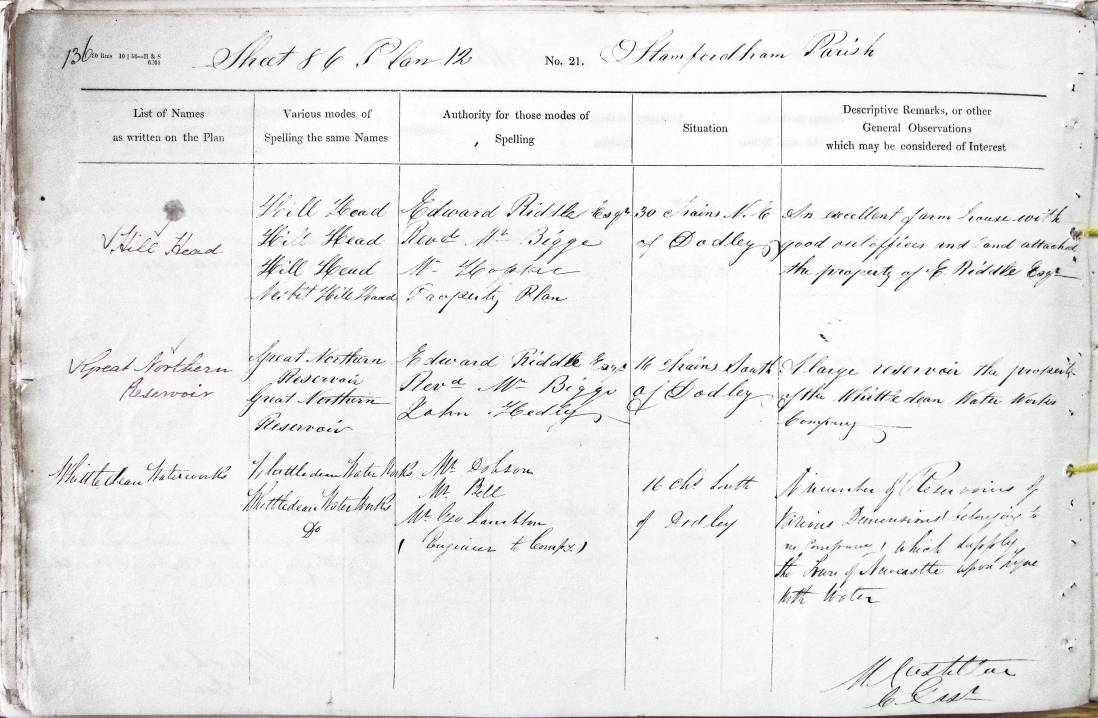 136
Sheet 86 Plan 12 No. 21. Stamfordham Parish
List of Names
as written on the Plan
Various modes of
Spelling the same Names
Authority for those modes of
Spelling
Situation
Descriptive Remarks, or other
General Observations
which may be considered of Interest
Hill Head
Hill Head
Hill Head
Hill Head
Nesbit Hill Head
Edward Riddle Esqr
Revd Mr Bigge
Mr Hopper
Property Plan
30 chains N. E
of Dodley
An excellent farm house with
good outoffices and land attached
the property of E Riddle Esqr
Great Northern
Reservoir
Great Northern
Reservoir
Great Northern
Reservoir
Edward Riddle Esqr
Revd Mr Bigge
John Hedley
16 chains South
of Dodley
A large reservoir the property
of the Whittledean Water Works
Company
Whittledean Waterworks
Whittledean Water Works
Whittledean Water Works
Do
Mr Dobson
Mr Bell
Mr Geo Lambton
(Engineer to Compy)
16 chs South
of Dodley
A number of Reservoirs of
Various Dimensions belonging to
Company, which supply
the Town of Newcastle upon Tyne
with Water